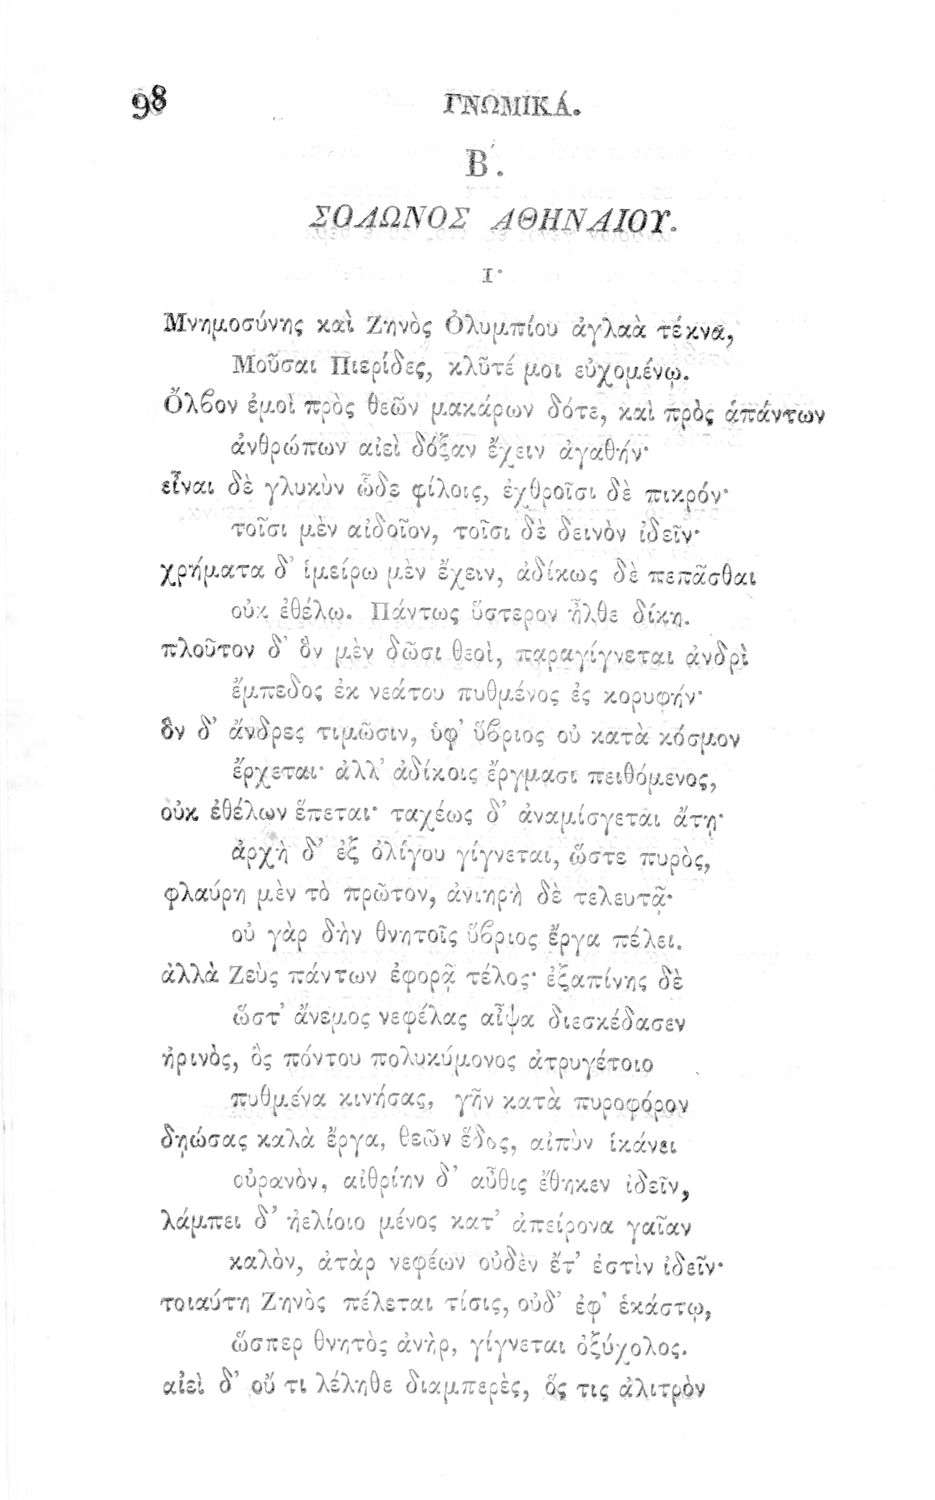 98 ΓΝΩΜΙΚΆ.
Β΄.
ΣΟΛΩΝΟΣ ΑΘΗΝΑΙΟΥ.
Ι·
Μνημοσύνης καὶ Ζηνὸς Ὀλυμπίου ἀγλαὰ τέκνα,
Μοῦσαι Πιερίδες, κλῦτέ μοι εὐχομένῳ.
Ὄλβον ἐμοὶ πρὸς θεῶν μακάρων δότε, καὶ πρὸς ἁπάντων
ἀνθρώπων αἰεὶ δόξαν ἔχειν ἀγαθήν·
εἶναι δὲ γλυκὺν ὧδε φίλοις, ἐχθροῖσι δὲ πικρόν·
τοῖσι μὲν αἰδοῖον, τοῖσι δὲ δεινὸν ἰδεῖν·
χρήματα δ’ ἱμείρω μὲν ἔχειν, ἀδίκως δὲ πεπᾶσθαι
οὐκ ἐθέλω. Πάντως ὕστερον ἦλθε δίκη.
πλοῦτον δ’ ὃν μὲν δῶσι θεοὶ, παραγίγνεται ἀνδρὶ
ἔμπεδος ἐκ νεάτου πυθμένος ἐς κορυφήν·
ὃν δ’ ἄνδρες τιμῶσιν, ὑφ’ ὕβριος οὐ κατὰ κόσμον
ἔρχεται· ἀλλ’ ἀδίκοις ἔργμασι πειθόμενος,
οὐκ ἐθέλων ἕπεται· ταχέως δ’ ἀναμίσγεται ἄτῃ·
ἀρχὴ δ’ ἐξ ὀλίγου γίγνεται, ὥστε πυρὸς,
φλαύρη μὲν τὸ πρῶτον, ἀνιηρὴ δὲ τελευτᾷ·
οὐ γὰρ δὴν θνητοῖς ὕβριος ἔργα πέλει.
ἀλλὰ Ζεὺς πάντων ἐφορᾷ τέλος· ἐξαπίνης δὲ
ὥστ’ ἄνεμος νεφέλας αἶψα διεσκέδασεν
ἠρινὸς, ὃς πόντου πολυκύμονος ἀτρυγέτοιο
πυθμένα κινήσας, γῆν κατὰ πυροφόρον
δῃώσας καλὰ ἔργα, θεῶν ἕδος, αἰπὺν ἱκάνει
οὐρανὸν, αἰθρίην δ’ αὖθις ἔθηκεν ἰδεῖν,
λάμπει δ’ ἠελίοιο μένος κατ’ ἀπείρονα γαῖαν
καλὸν, ἀτὰρ νεφέων οὐδὲν ἔτ’ ἐστὶν ἰδεῖν·
τοιαύτη Ζηνὸς πέλεται τίσις, οὐδ’ ἐφ’ ἑκάστῳ,
ὥσπερ θνητὸς ἀνὴρ, γίγνεται ὀξύχολος.
αἰεὶ δ’ οὔ τι λέληθε διαμπερὲς, ὅς τις ἀλιτρὸν